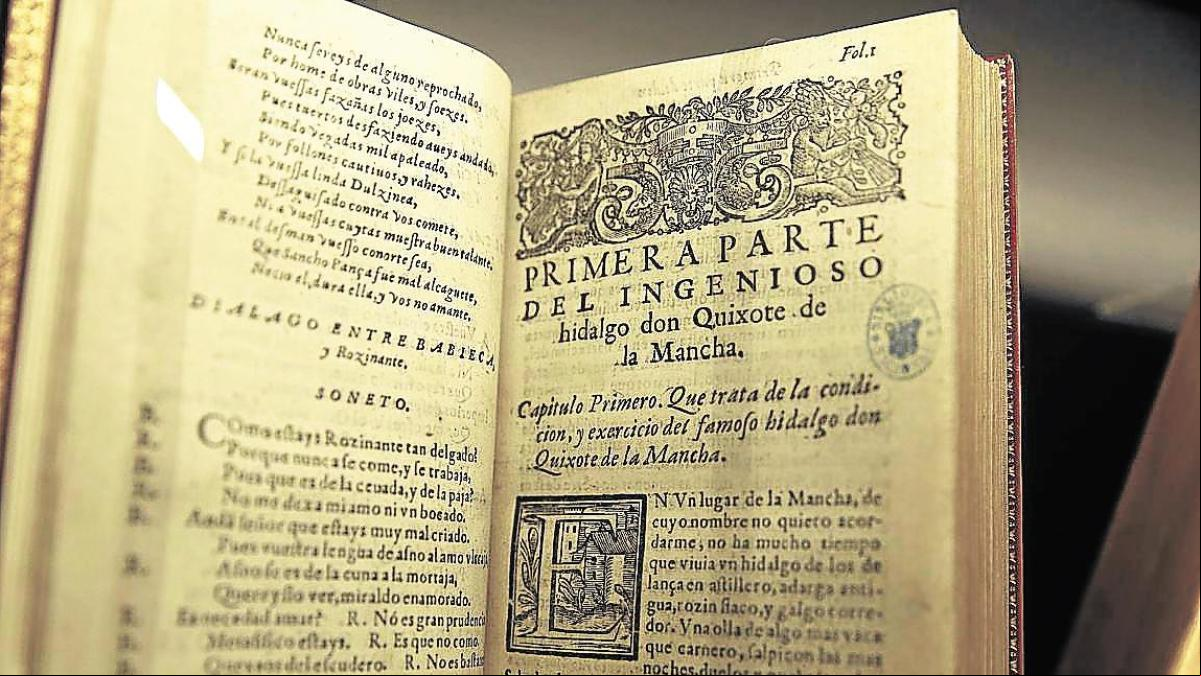 Nunca ſereys de alguno reprochado,
Por home de obras viles, y ſoezes.
Seran vueſſas fazañas los joezes,
Pues tuertos desfaziendo aueys andado,
Siendo vegadas mil apaleado,
Por follones cautiuos, y rahezes.
Y ſi la vueſſa linda Dulzinea,
Deſſaguiſado contra vos comete,
Ni a vueſſas cuytas mueſtra buen talante.
En tal deſman vueſſo conorte ſea,
Que Sancho Pança fue mal alcaguete,
Necio el, dura ella, y vos no amante.
DIALAGO ENTRE BABIECA,
y Rozinante.
SONETO.
B. COmo eſtays Rozinante tan delgado?
R. Porque nunca ſe come, y ſe trabaja,
B. Pues que es de la ceuada, y de la paja?
R. No me dexa mi amo ni vn bocado.
B. Andà ſeñor que eſtays muy mal criado.
Pues vueſtra lengua de aſno al amo
R. Aſno ſe es de la cuna a la mortaja,
Quereyſlo ver, miraldo enamorado.
B. Es necedad amar? R. Nó es gran prudenc
B. Metafiſico eſtays. R. Es que no como.
B. Quexaos del eſcudero. R. No es baſta
Fol.1
PRIMERA PARTE
DEL INGENIOSO
hidalgo don Quixote de
la Mancha.
Capitulo Primero. Que trata de la condi-
cion, y exercicio del famoſo hidalgo don
Quixote de la Mancha.
EN Vn lugar de la Mancha, de
cuyo nombre no quiero acor-
darme, no ha mucho tiempo
que viuia vn hidalgo de los de
lança en aſtillero, adarga anti-
gua, rozin flaco, y galgo corre-
dor. Vna olla de algo mas vaca
que carnero, ſalpicon las mas
noches, duelos y